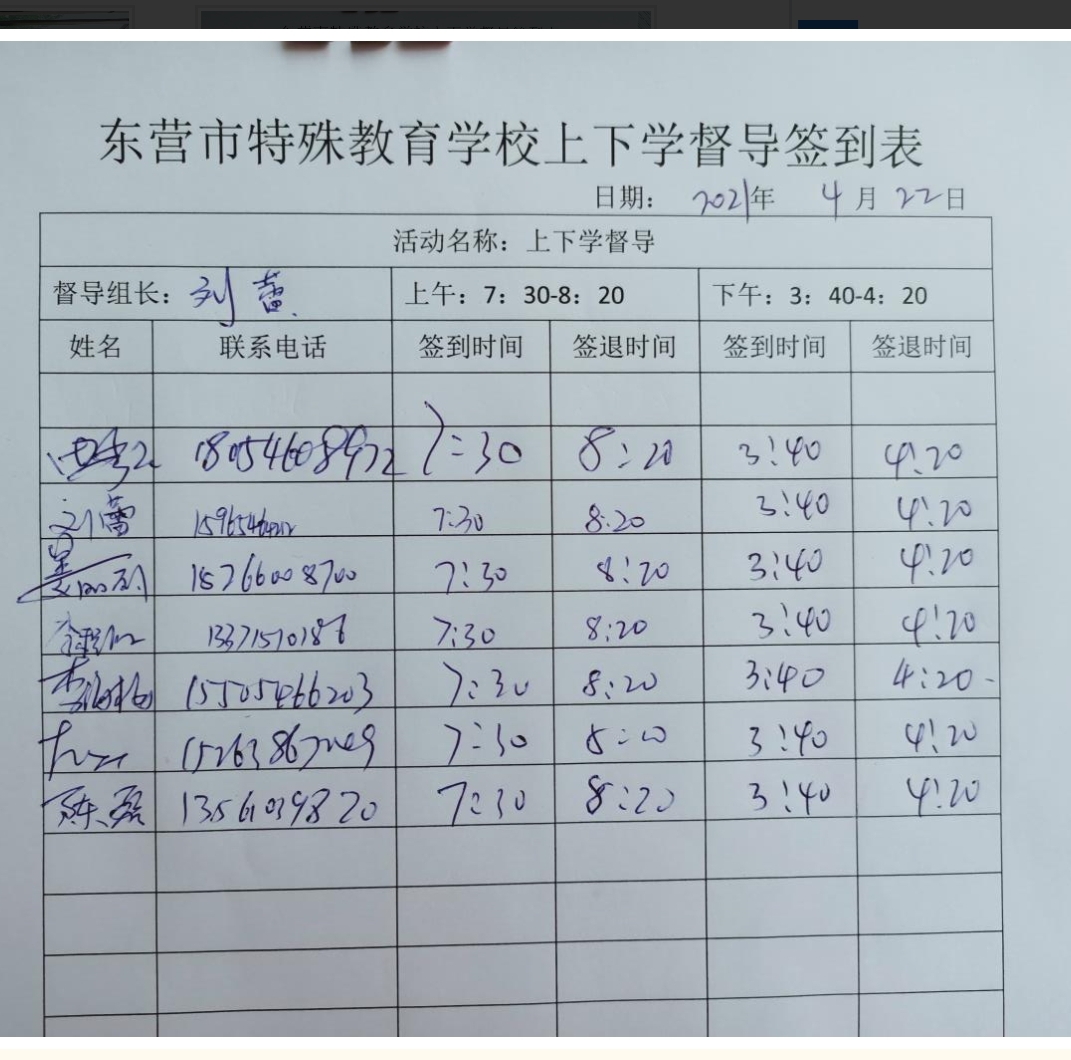 东营市特殊教育学校上下学督导签到表
日期: 2021年 4月22日
活动名称: 上下学督导
督导组长: 刘蕾 上午: 7: 30-8: 20 下午: 3: 40-4: 20
姓名 联系电话 签到时间 签退时间 签到时间 签退时间
18054608972 7:30 8:20 3:40 4:20
刘蕾 7:30 8:20 3:40 4:20
18766008700 7:30 8:20 3:40 4:20
7:30 8:20 3:40 4:20
15505466203 7:30 8:20 3:40 4:20
7:30 3:40 4:20
陈磊 13561039820 7:30 8:20 3:40 4:20